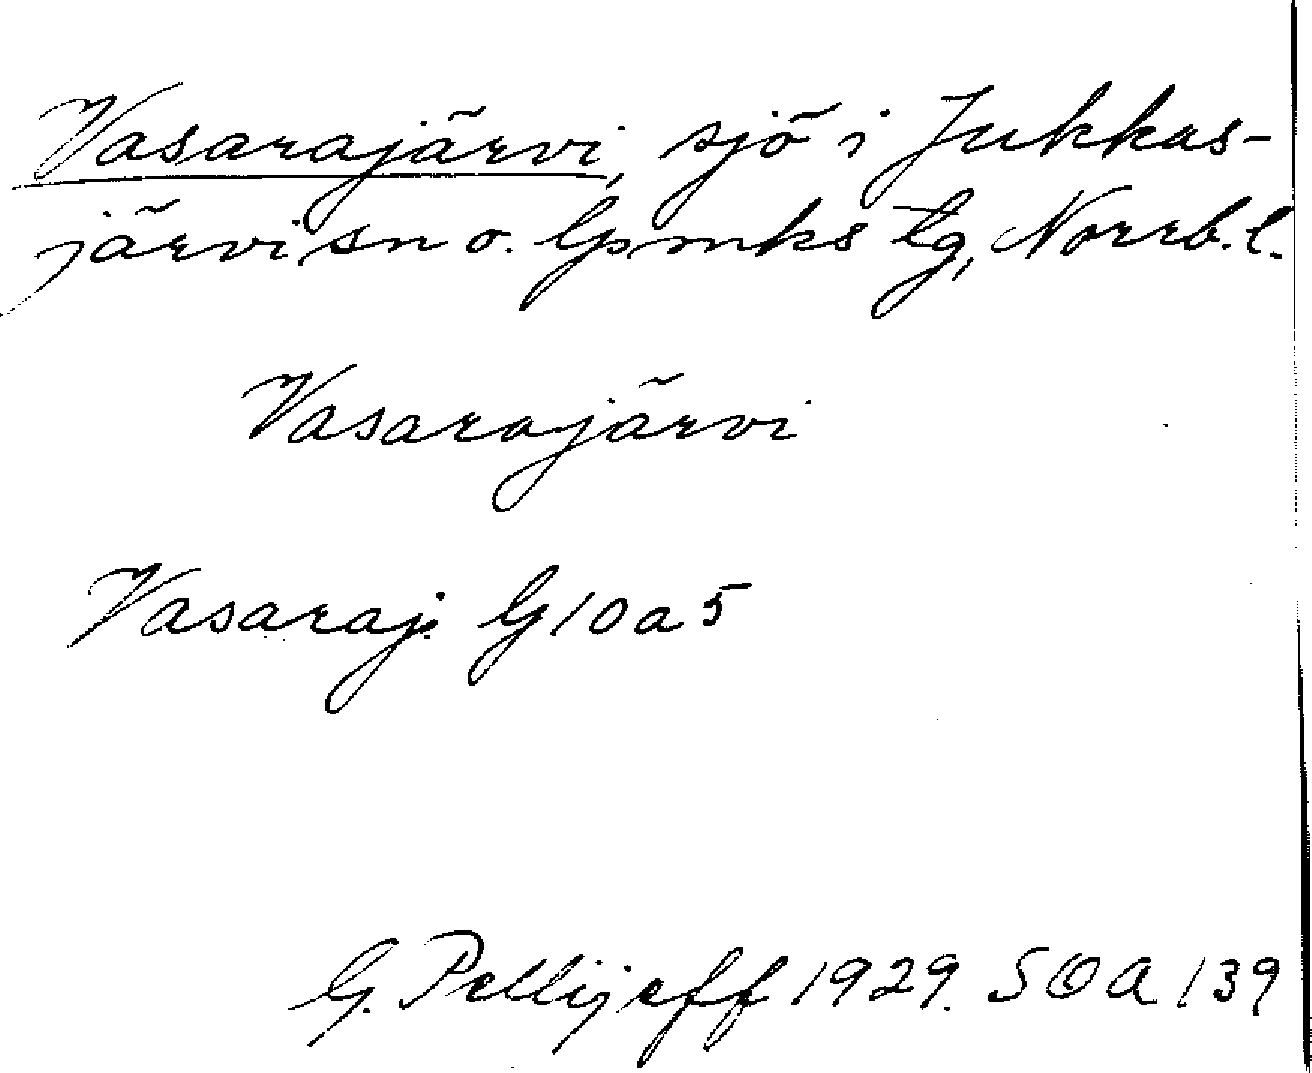 Vasarajärvi, sjö i Jukkas-
järvi sn o. Gpmks tg, Norrb. l.
Vasarajärvi
Vasaraj. G 10 a 5
G. Pellijeff 1929. SOA 139